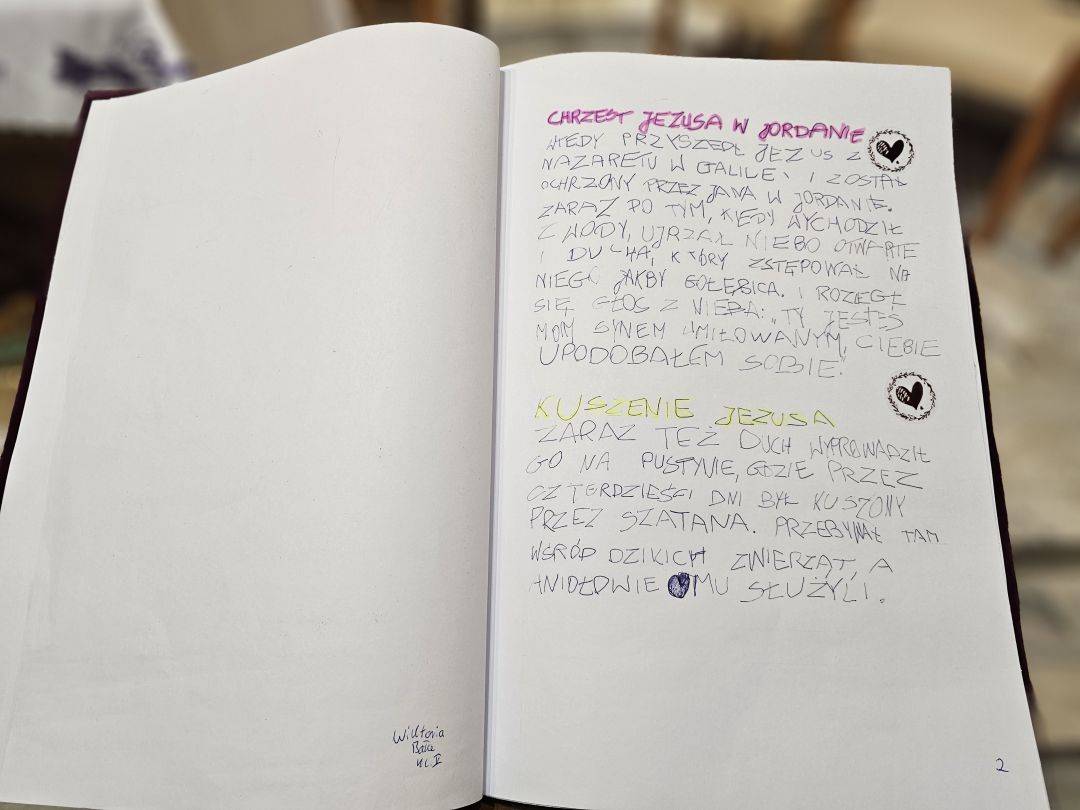 Wiktoria
kl. II
CHRZEST JEZUSA W JORDANIE
WTEDY PRZYSZEDŁ JEZUS Z
NAZARETU W GALILEI I ZOSTAŁ
OCHRZONY PRZEZ JANA W JORDANIE.
ZARAZ PO TYM, KIEDY WYCHODZIŁ
Z WODY, UJRZAŁ NIEBO OTWARTE
I DUCHA, KTÓRY ZSTĘPOWAŁ NA
NIEGO JAKBY GOŁĘBICA. I ROZEGŁ
SIĘ GŁOS Z NIEBA: „TY JESTEŚ
MOIM SYNEM UMIŁOWANYM, CIEBIE
UPODOBAŁEM SOBIE"
KUSZENIE JEZUSA
ZARAZ TEŻ DUCH WYPROWADZIŁ
GO NA PUSTYNIE, GDZIE PRZEZ
CZTERDZIEŚCI DNI BYŁ KUSZONY
PRZEZ SZATANA. PRZEBYWAŁ TAM
WŚRÓD DZIKICH ZWIERZĄT, A
ANIOŁOWIE MU SŁUŻYLI.
2